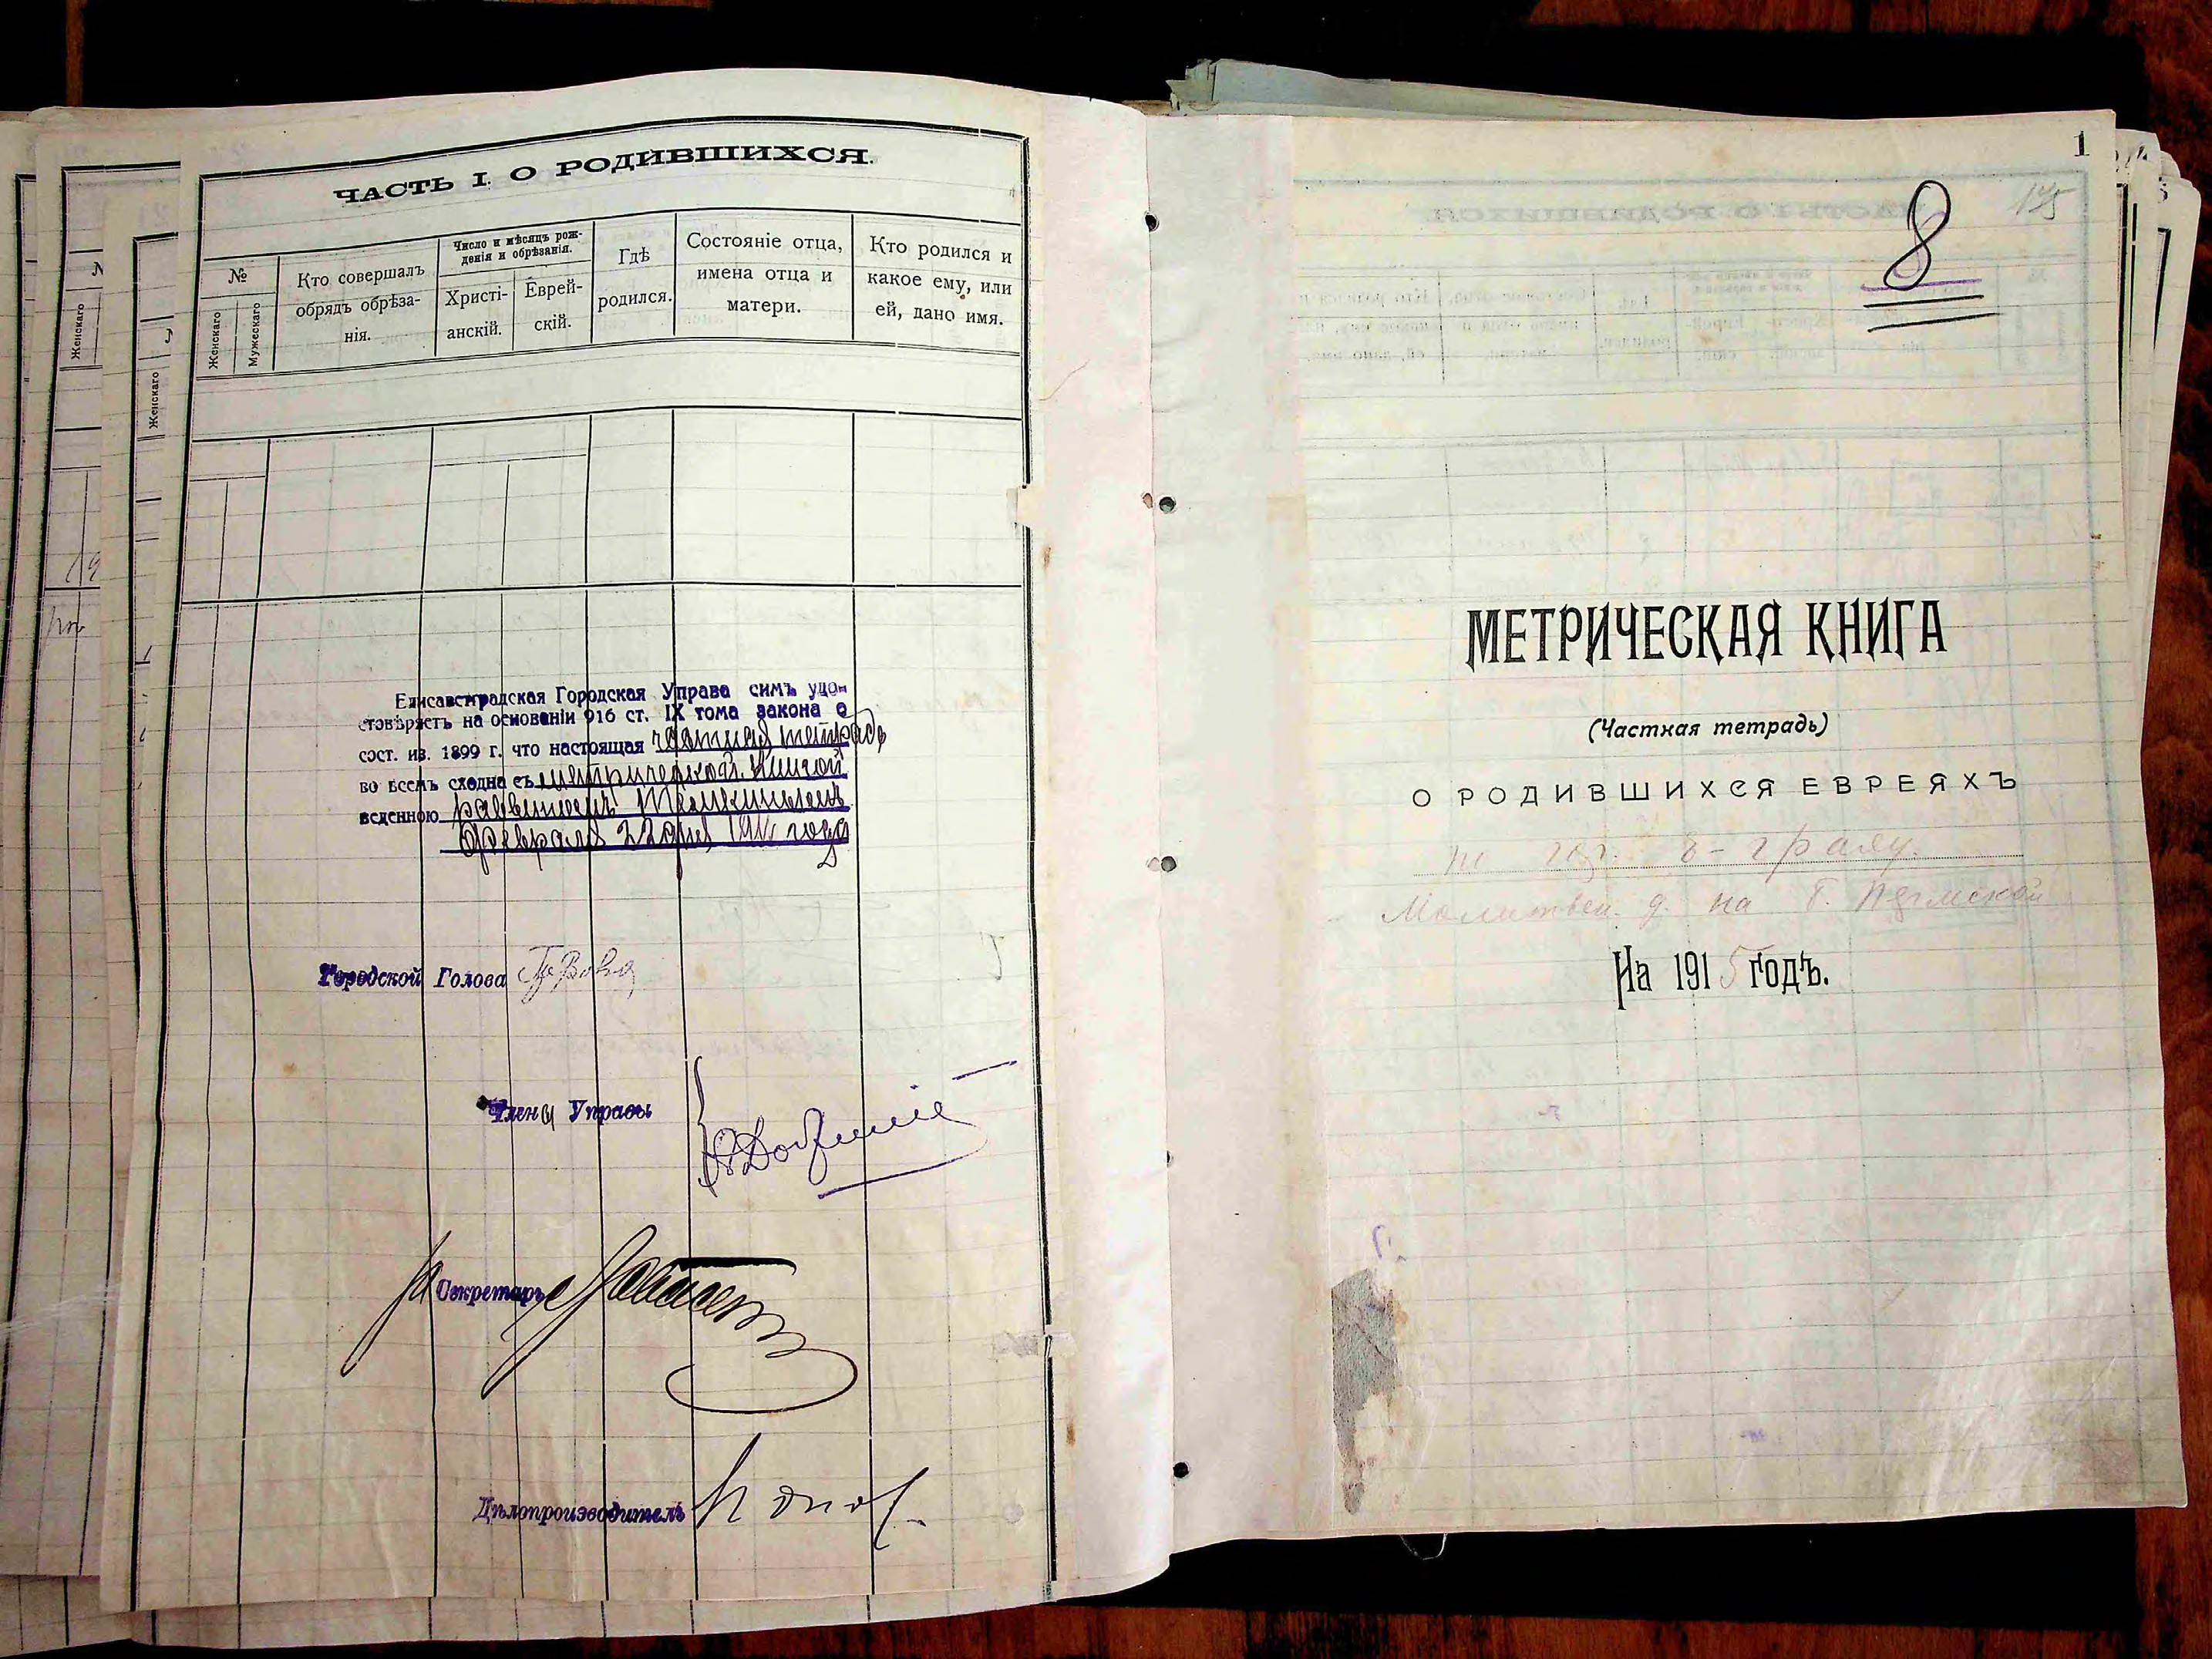 ЧАСТЬ I. О РОДИВШИХСЯ.
№
Женскаго
Мужескаго
Кто совершалъ
обрядъ обрѣза-
нія.
Число и мѣсяцъ рож-
денія и обрѣзанія.
Христі-
анскій.
Еврей-
скій.
Гдѣ
родился.
Состояніе отца,
имена отца и
матери.
Кто родился и
какое ему, или
ей, дано имя.
Елисаветградская Городская Управа симъ удо-
стовѣряетъ на основаніи 916 ст. IX тома закона о
сост. из. 1899 г. что настоящая частная тетрадь
во всемъ сходна съ метрической книгой
веденною раввиномъ
февраля 22 дня 191 года
Городской Голова
Члены Управы
Секретарь
Дѣлопроизводитель
Женскаго
Женскаго
1
8
МЕТРИЧЕСКАЯ КНИГА
(Частная тетрадь)
О РОДИВШИХСЯ ЕВРЕЯХЪ
по гор. Е-граду.
Молитвен. д. на Б. Пермской
На 1915 годъ.